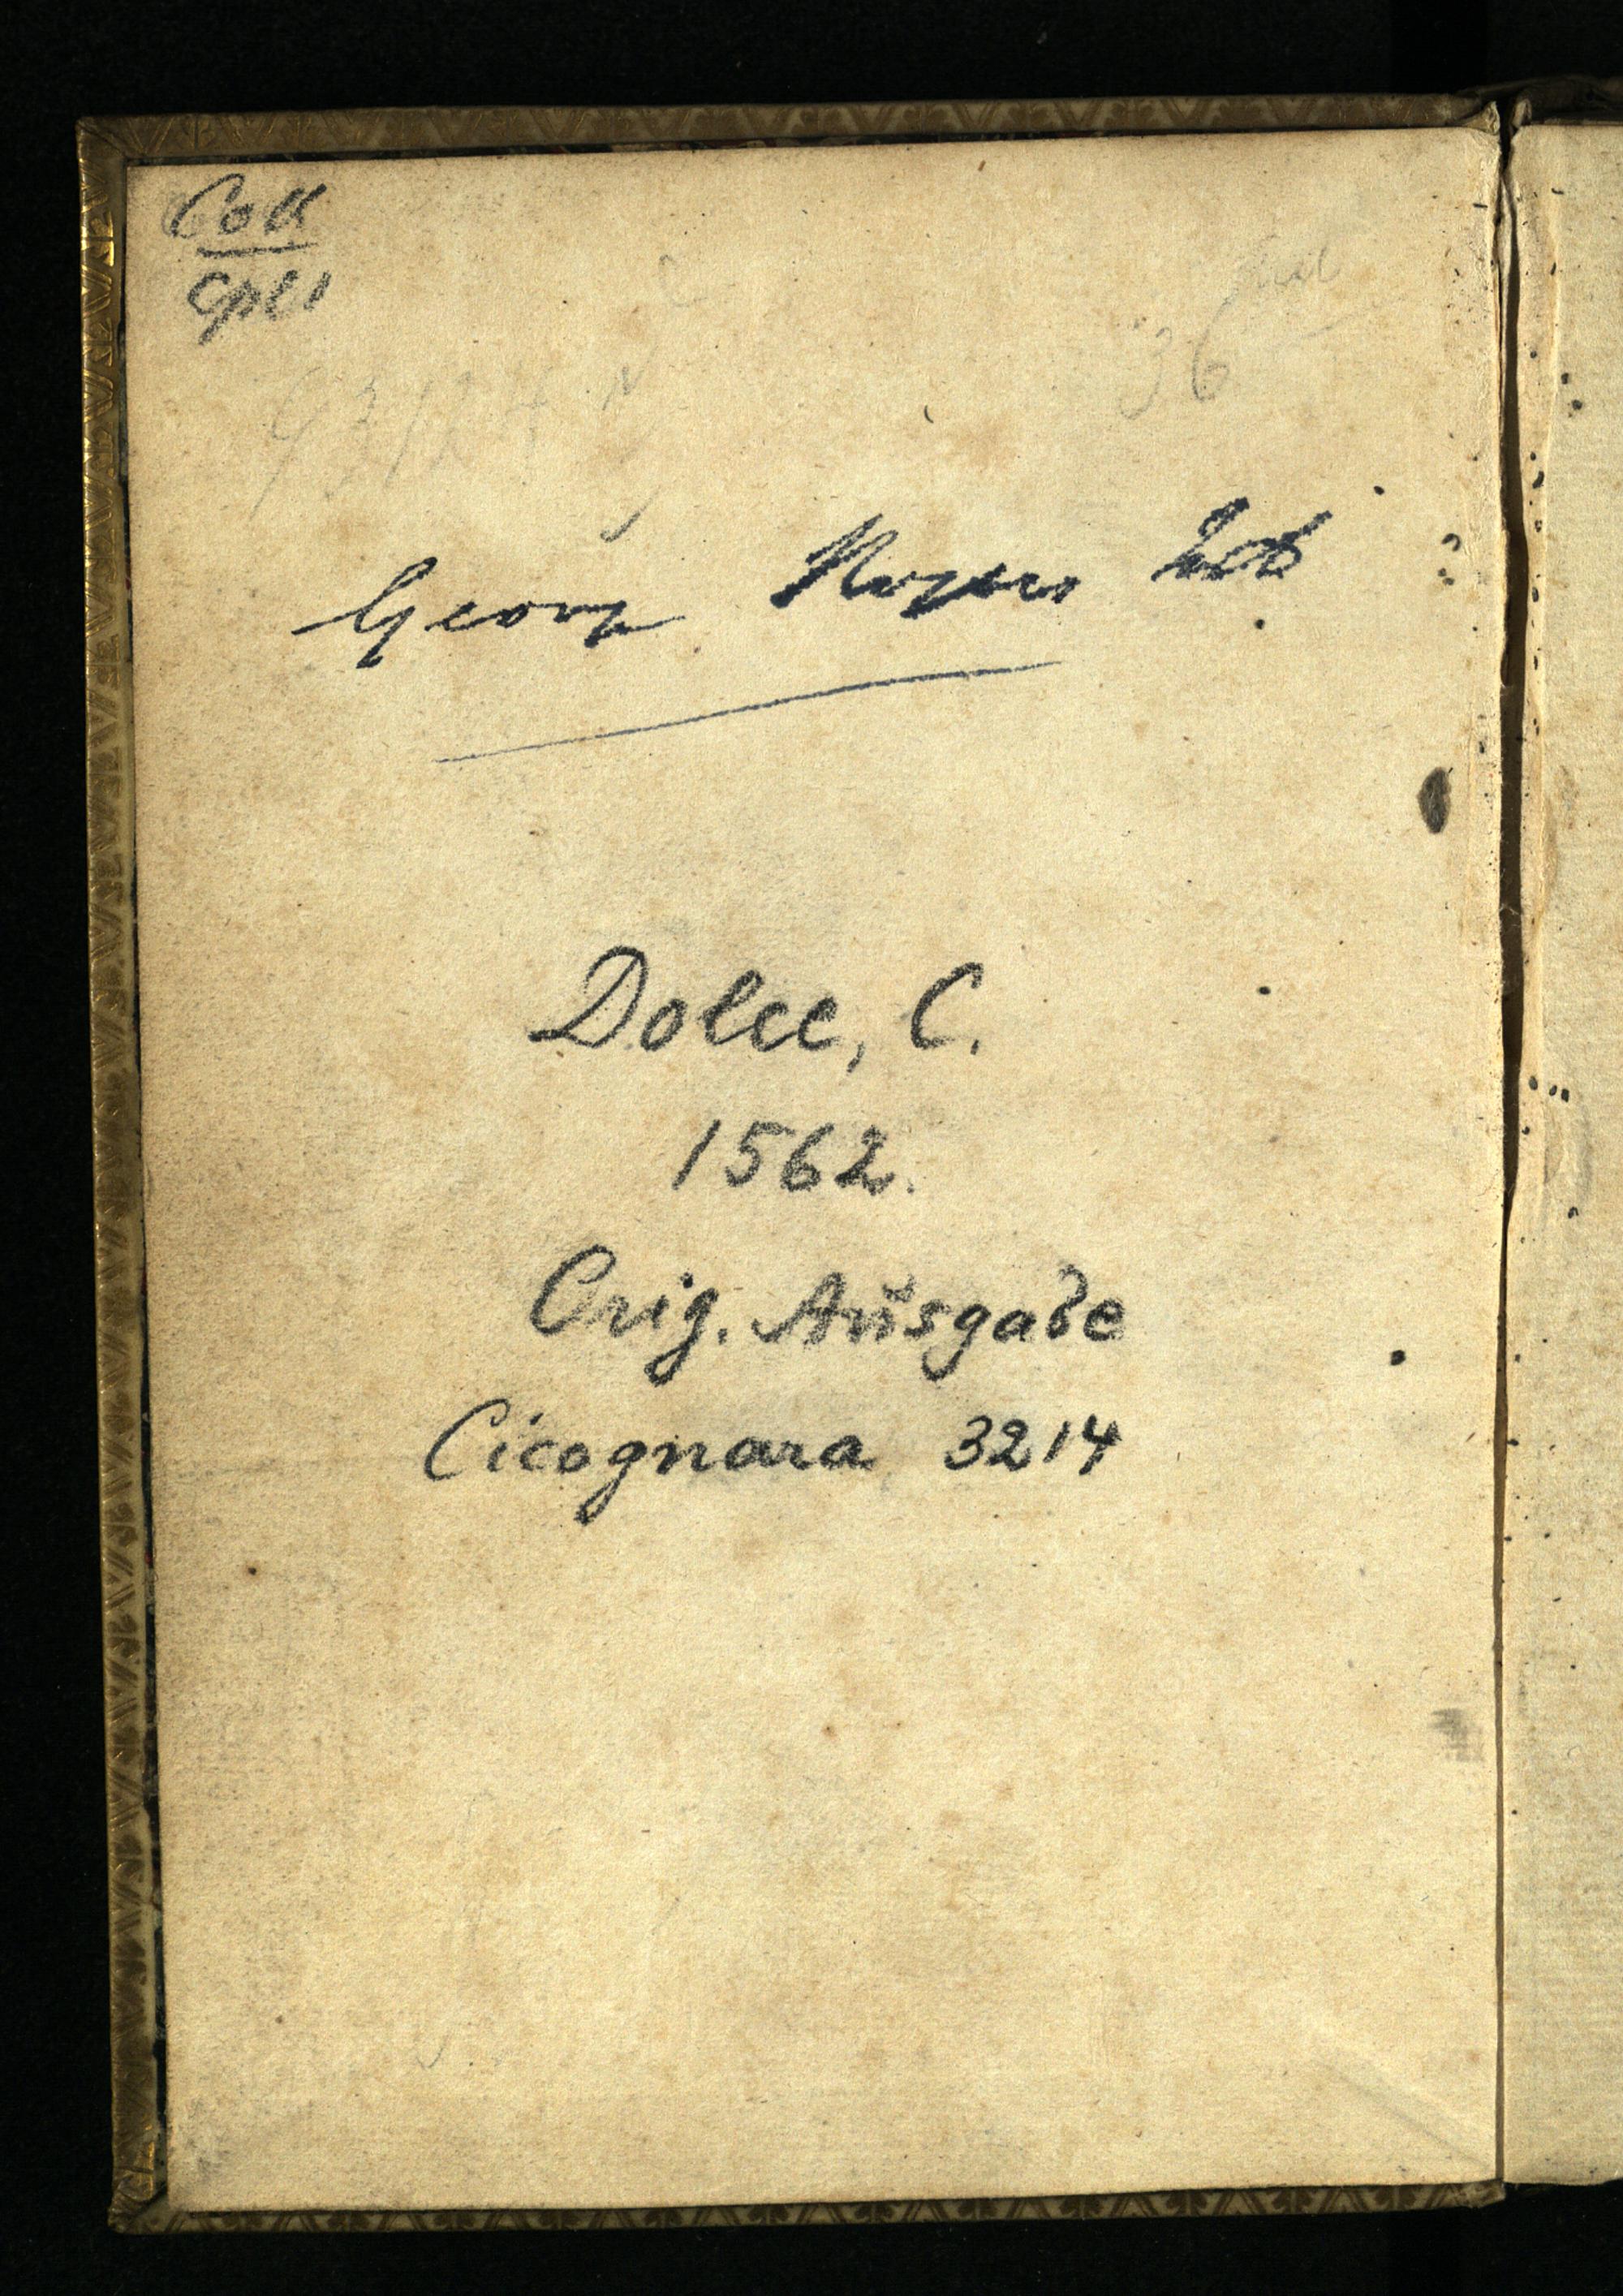 Coll
cpl.
36
Georg
Dolce, C.
1562.
Orig. Ausgabe
Cicognara 3214